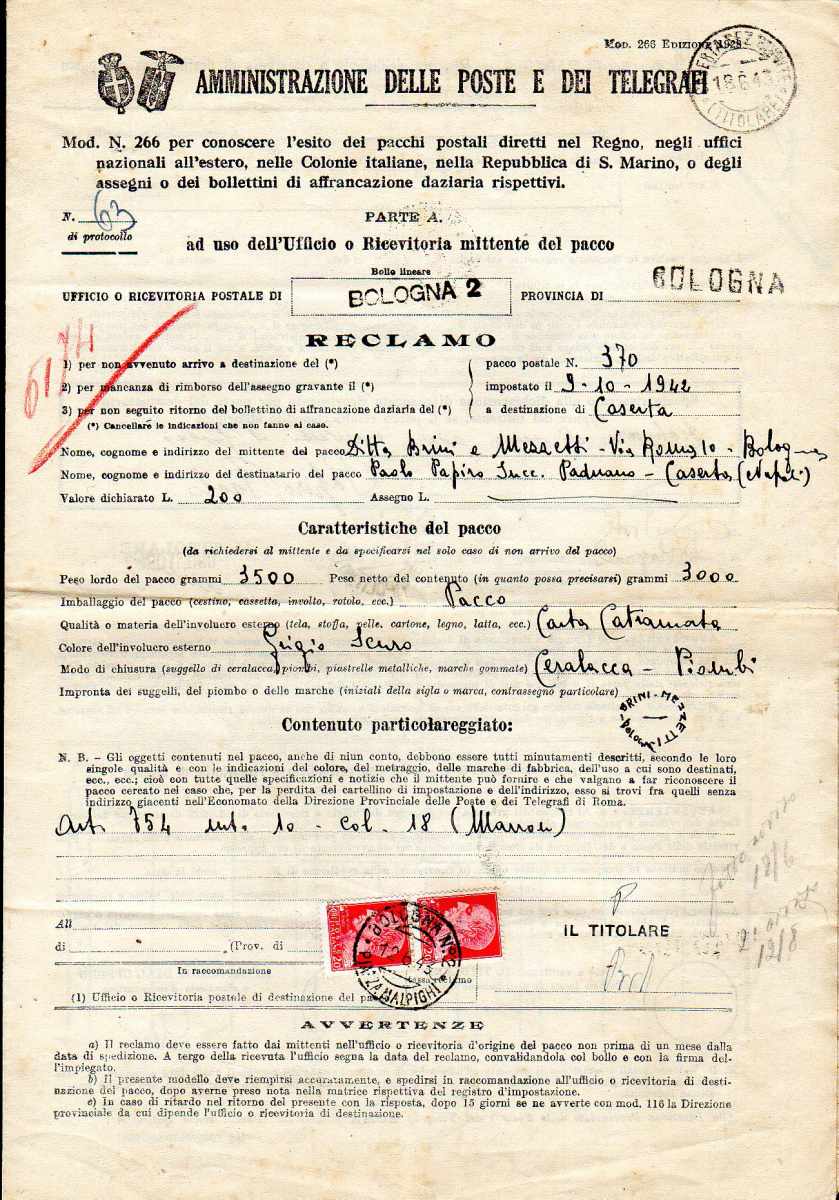 Mod. 266 Edizione 1928
AMMINISTRAZIONE DELLE POSTE E DEI TELEGRAFI
18.6.43
(TITOLARE)
Mod. N. 266 per conoscere l'esito dei pacchi postali diretti nel Regno, negli uffici
nazionali all'estero, nelle Colonie italiane, nella Repubblica di S. Marino, o degli
assegni o dei bollettini di affrancazione daziaria rispettivi.
N. 63
di protocollo
PARTE A.
ad uso dell'Ufficio o Ricevitoria mittente del pacco
Bollo lineare
UFFICIO O RICEVITORIA POSTALE DI BOLOGNA 2 PROVINCIA DI BOLOGNA
RECLAMO
6174
1) per non avvenuto arrivo a destinazione del (*) pacco postale N. 370
2) per mancanza di rimborso dell'assegno gravante il (*) impostato il 9-10-1942
3) per non seguito ritorno del bollettino di affrancazione daziaria del (*) a destinazione di Caserta
(*) Cancellare le indicazioni che non fanno al caso.
Nome, cognome e indirizzo del mittente del pacco Ditta Brini e Mezzetti - Via Roma 10 - Bologna
Nome, cognome e indirizzo del destinatario del pacco Paolo Papiro Succ. Paduano - Caserta (Napoli)
Valore dichiarato L. 200 Assegno L.
Caratteristiche del pacco
(da richiedersi al mittente e da specificarsi nel solo caso di non arrivo del pacco)
Peso lordo del pacco grammi 3500 Peso netto del contenuto (in quanto possa precisarsi) grammi 3000
Imballaggio del pacco (cestino, cassetta, involto, rotolo, ecc.) Pacco
Qualità o materia dell'involucro esterno (tela, stoffa, pelle, cartone, legno, latta, ecc.) Carta Catramata
Colore dell'involucro esterno Grigio Scuro
Modo di chiusura (suggello di ceralacca, piombi, piastrelle metalliche, marche gommate) Ceralacca - Piombi
Impronta dei suggelli, del piombo o delle marche (iniziali della sigla o marca, contrassegno particolare)
BRINI-MEZZETTI Bologna
Contenuto particolareggiato:
N. B. - Gli oggetti contenuti nel pacco, anche di niun conto, debbono essere tutti minutamenti descritti, secondo le loro
singole qualità e con le indicazioni del colore, del metraggio, delle marche di fabbrica, dell'uso a cui sono destinati,
ecc., ecc.; cioè con tutte quelle specificazioni e notizie che il mittente può fornire e che valgano a far riconoscere il
pacco cercato nel caso che, per la perdita del cartellino di impostazione e dell'indirizzo, esso si trovi fra quelli senza
indirizzo giacenti nell'Economato della Direzione Provinciale delle Poste e dei Telegrafi di Roma.
Art. 754 mt. 10 - col. 18 (Marron)
18/6
2°
12/8
All
di (Prov. di
IL TITOLARE
BOLOGNA N. 2
PIAZZA MALPIGHI
20
20
In raccomandazione
tassa reclamo
(1) Ufficio o Ricevitoria postale di destinazione del pa
AVVERTENZE
a) Il reclamo deve essere fatto dai mittenti nell'ufficio o ricevitoria d'origine del pacco non prima di un mese dalla
data di spedizione. A tergo della ricevuta l'ufficio segna la data del reclamo, convalidandola col bollo e con la firma del-
l'impiegato.
b) Il presente modello deve riempirsi accuratamente, e spedirsi in raccomandazione all'ufficio o ricevitoria di desti-
nazione del pacco, dopo averne preso nota nella matrice rispettiva del registro d'impostazione.
c) In caso di ritardo nel ritorno del presente con la risposta, dopo 15 giorni se ne avverte con mod. 116 la Direzione
provinciale da cui dipende l'ufficio o ricevitoria di destinazione.